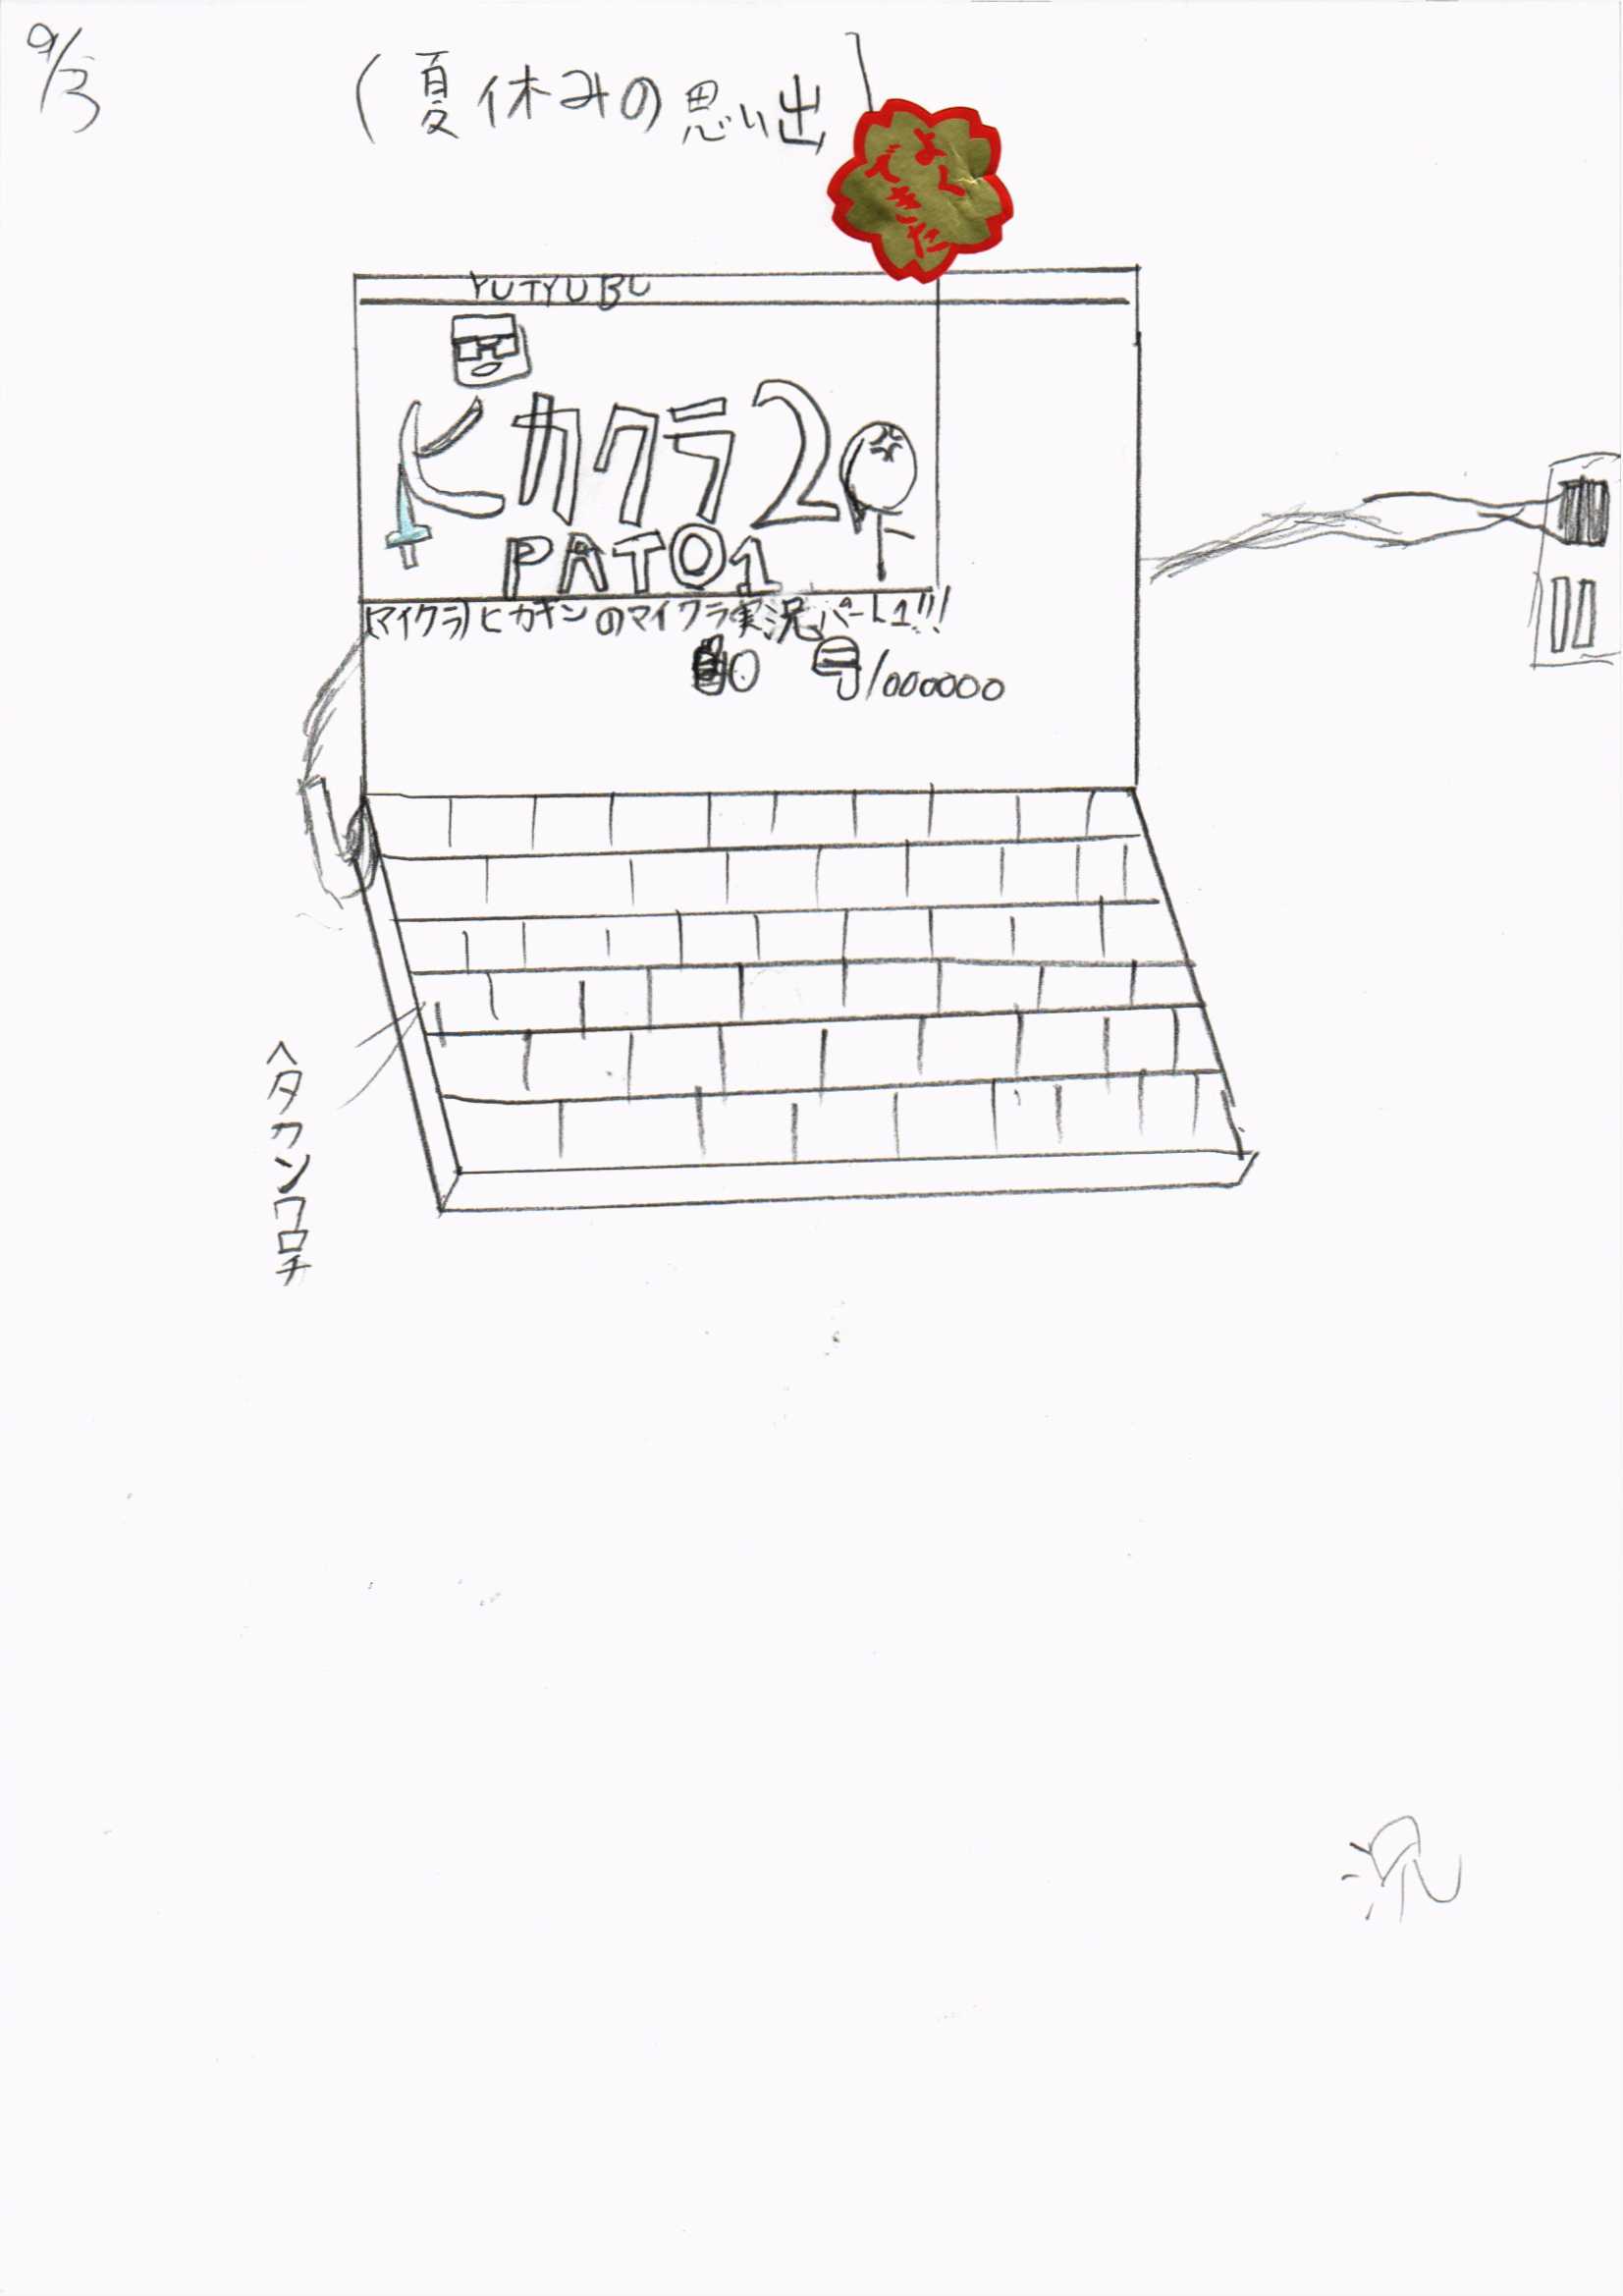 9/3
(夏休みの思い出)
よく
できた
YUTYUBU
ヒカクラ2
PATO1
(マイクラ)ヒカキンのマイクラ実況パート1!!!
0 1000000
ヘタカンワロチ
況